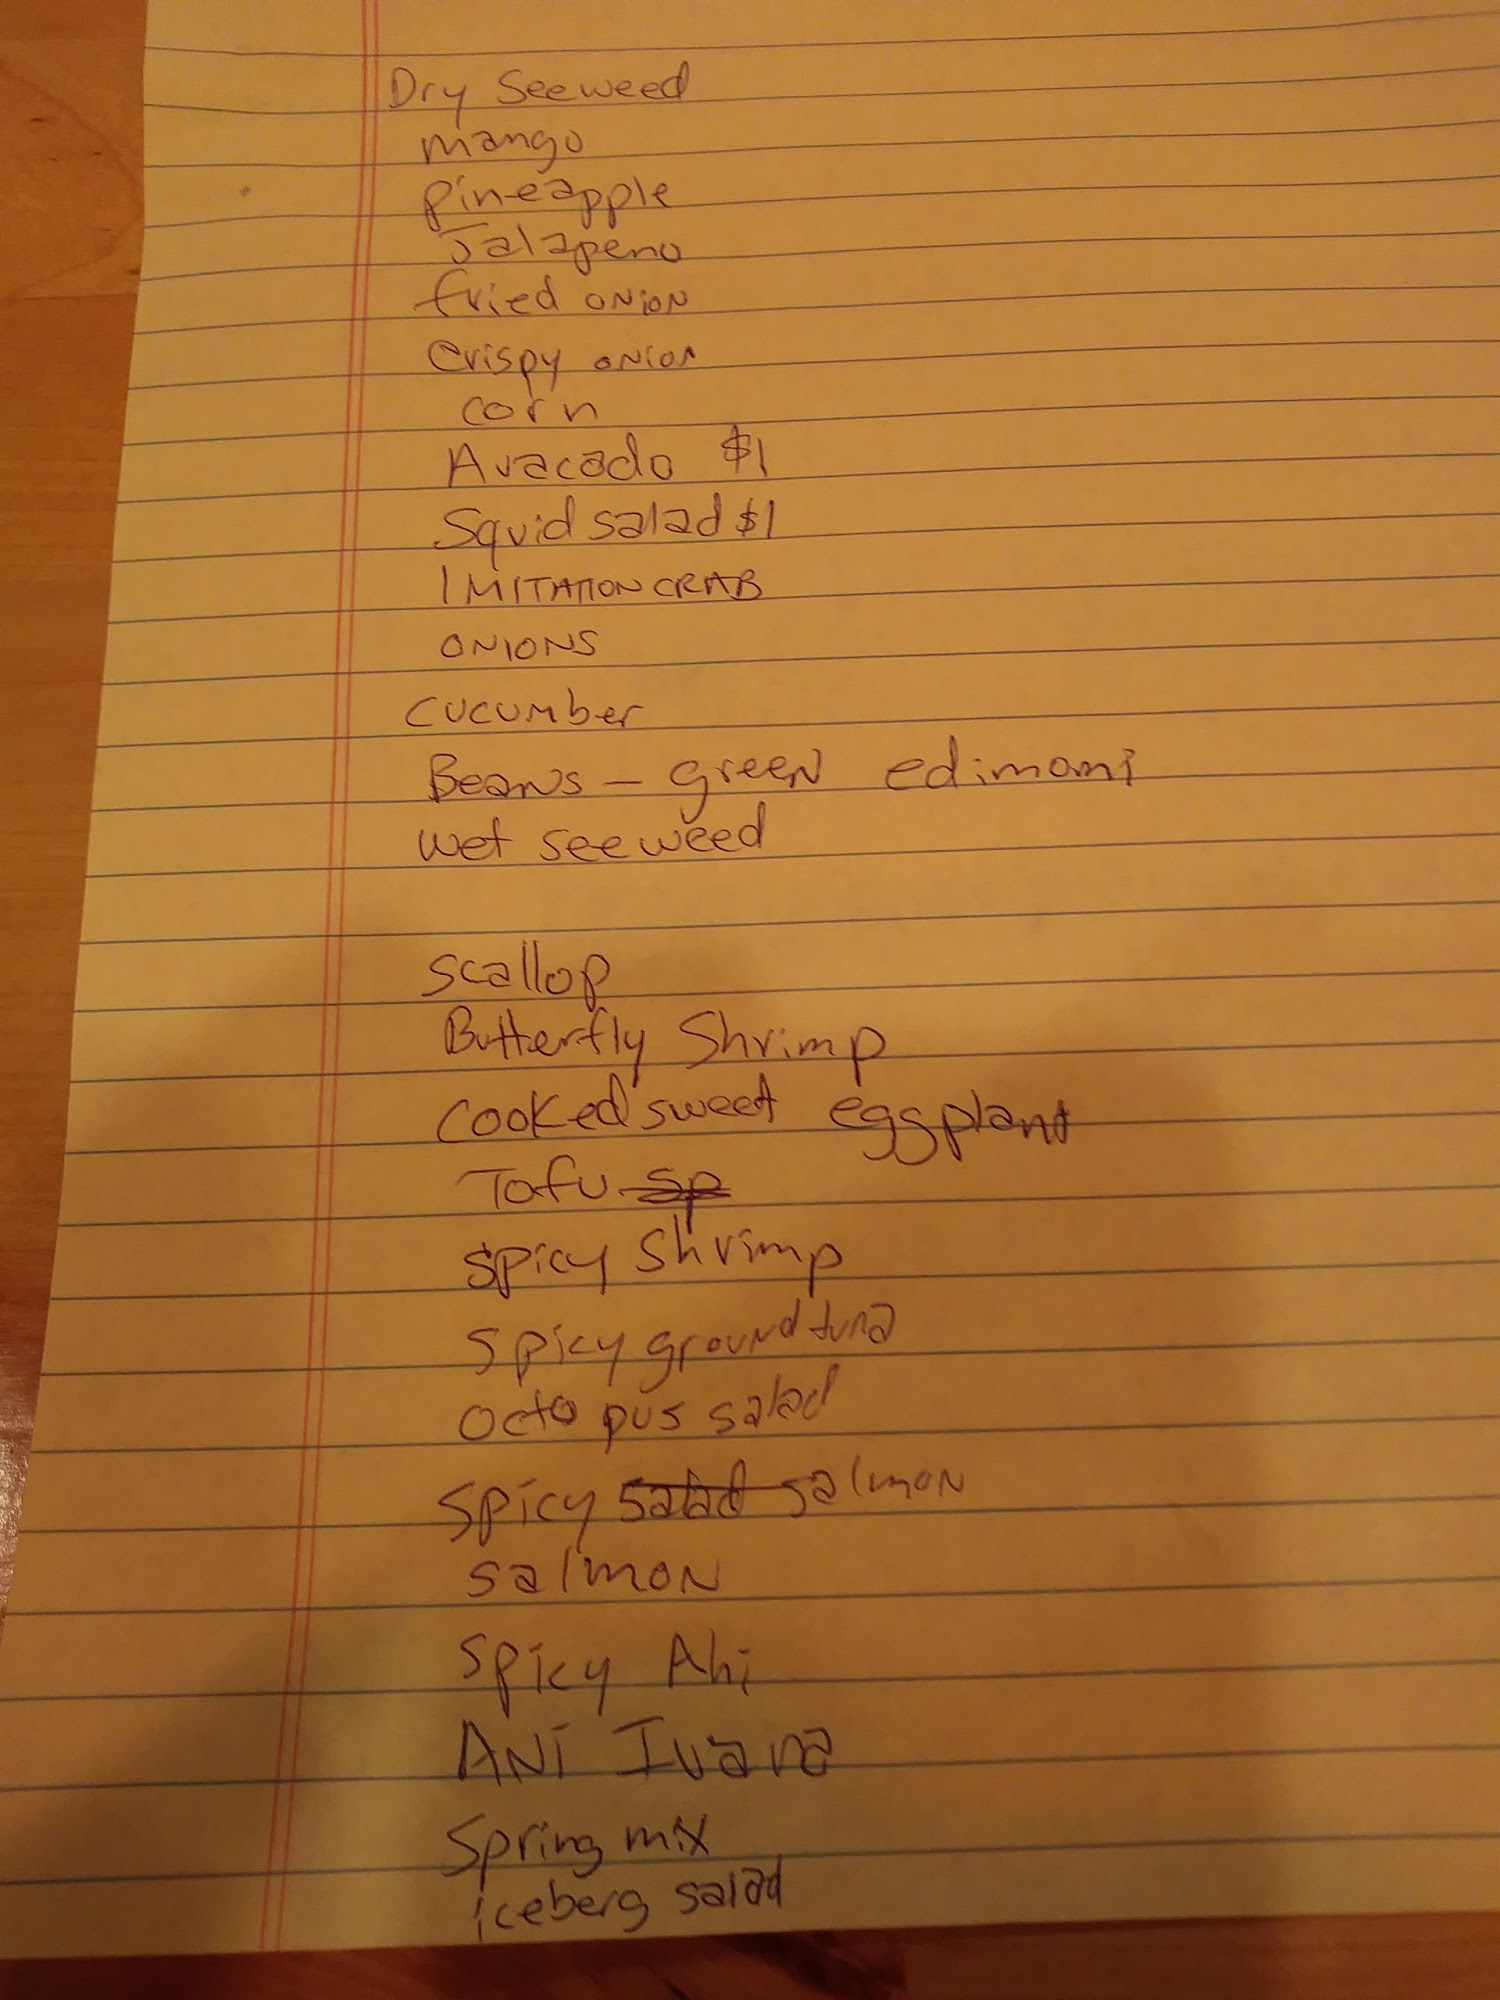 Dry Seeweed
mango
pineapple
Jalapeno
fried onion
crispy onion
corn
Avacado $1
Squid salad $1
IMITATION CRAB
ONIONS
cucumber
Beans - green edimomi
wet seeweed
scallop
Butterfly Shrimp
cooked sweet eggplant
Tofu sp
spicy shrimp
spicy ground tuna
octopus salad
spicy salad salmon
salmon
spicy Ahi
Spring mix
iceberg salad